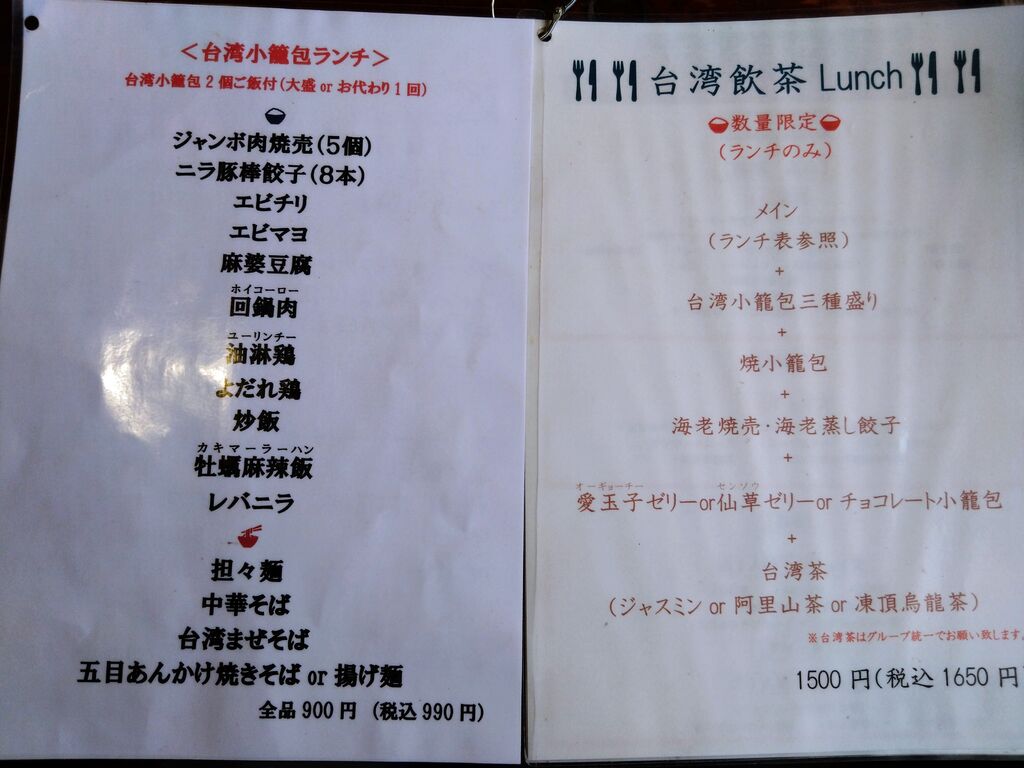 ＜台湾小籠包ランチ＞
台湾小籠包２個ご飯付(大盛 or お代わり1回)
ジャンボ肉焼売(5個)
ニラ豚棒餃子(8本)
エビチリ
エビマヨ
麻婆豆腐
ホイコーロー
回鍋肉
ユーリンチー
油淋鶏
よだれ鶏
炒飯
カキマーラーハン
牡蠣麻辣飯
レバニラ
担々麺
中華そば
台湾まぜそば
五目あんかけ焼きそば or 揚げ麺
全品 900 円 (税込 990 円)
台湾飲茶 Lunch
数量限定
(ランチのみ)
メイン
(ランチ表参照)
+
台湾小籠包三種盛り
+
焼小籠包
+
海老焼売・海老蒸し餃子
+
オーギョーチー センソウ
愛玉子ゼリーor仙草ゼリーor チョコレート小籠包
+
台湾茶
(ジャスミン or 阿里山茶 or 凍頂烏龍茶)
※台湾茶はグループ統一でお願い致します。
1500 円(税込 1650 円